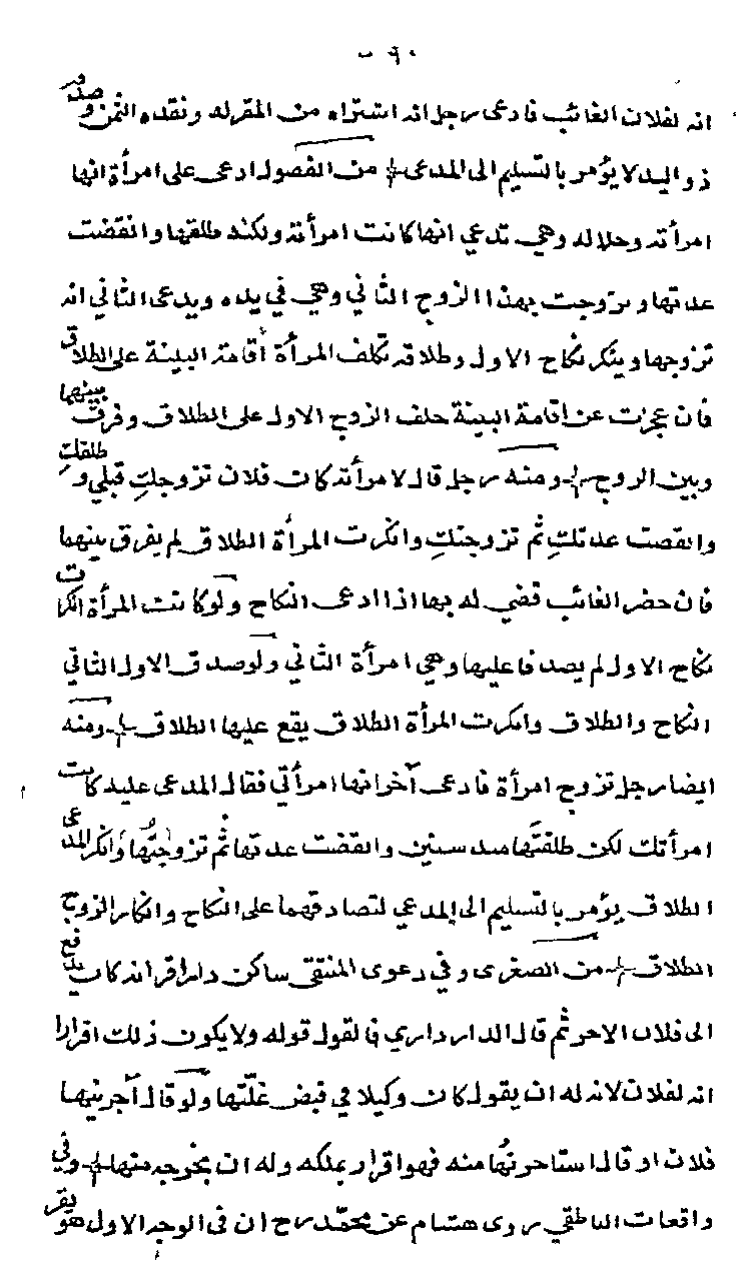 - ٦٠ -
انه لفلان الغائب فادعى رجل انه اشتراه من المقر له ونقده الثمن وصدقه
ذو اليد لا يؤمر بالتسليم الى المدعى من الفصول ادعى على امرأة انها
امرأته وحلاله وهي تدعي انها كانت امرأته ولكنه طلقها وانقضت
عدتها وتزوجت بهذا الزوج الثاني وهي في يده ويدعى الثاني انه
تزوجها وينكر نكاح الاول وطلاقه تكلف المرأة اقامة البينة على الطلاق
فان عجزت عن اقامة البينة حلف الزوج الاول على الطلاق وفرق بينهما
وبين الزوج ومنه رجل قال لامرأته كان فلان تزوجكِ قبلي وطلقكِ
وانقضت عدتكِ ثم تزوجتكِ وانكرت المرأة الطلاق لم يفرق بينهما
فان حضر الغائب قضي له بها اذا ادعى النكاح ولو كانت المرأة انكرت
نكاح الاول لم يصدقا عليها وهي امرأة الثاني ولو صدق الاول الثاني
النكاح والطلاق وانكرت المرأة الطلاق يقع عليها الطلاق ومنه
ايضا رجل تزوج امرأة فادعى آخر انها امرأتي فقال المدعى عليه كانت
امرأتك لكن طلقتَها منذ سنين وانقضت عدتها ثم تزوجتُها وانكر المدعى
الطلاق يؤمر بالتسليم الى المدعي لتصادقهما على النكاح وانكار الزوج
الطلاق من الصغرى وفي دعوى المنتقى ساكن دار اقر انه كان يدفع
الى فلان الاجر ثم قال الدار داري فالقول قوله ولا يكون ذلك اقرارا
انه لفلان لانه له ان يقول كان وكيلا في قبض غلّتها ولو قال آجرنيها
فلان او قال استاجرتُها منه فهو اقرار بملكه وله ان يخرجه منها وفي
واقعات الناطفي روى هشام عن محمّد رح ان في الوجه الاول هو يقر